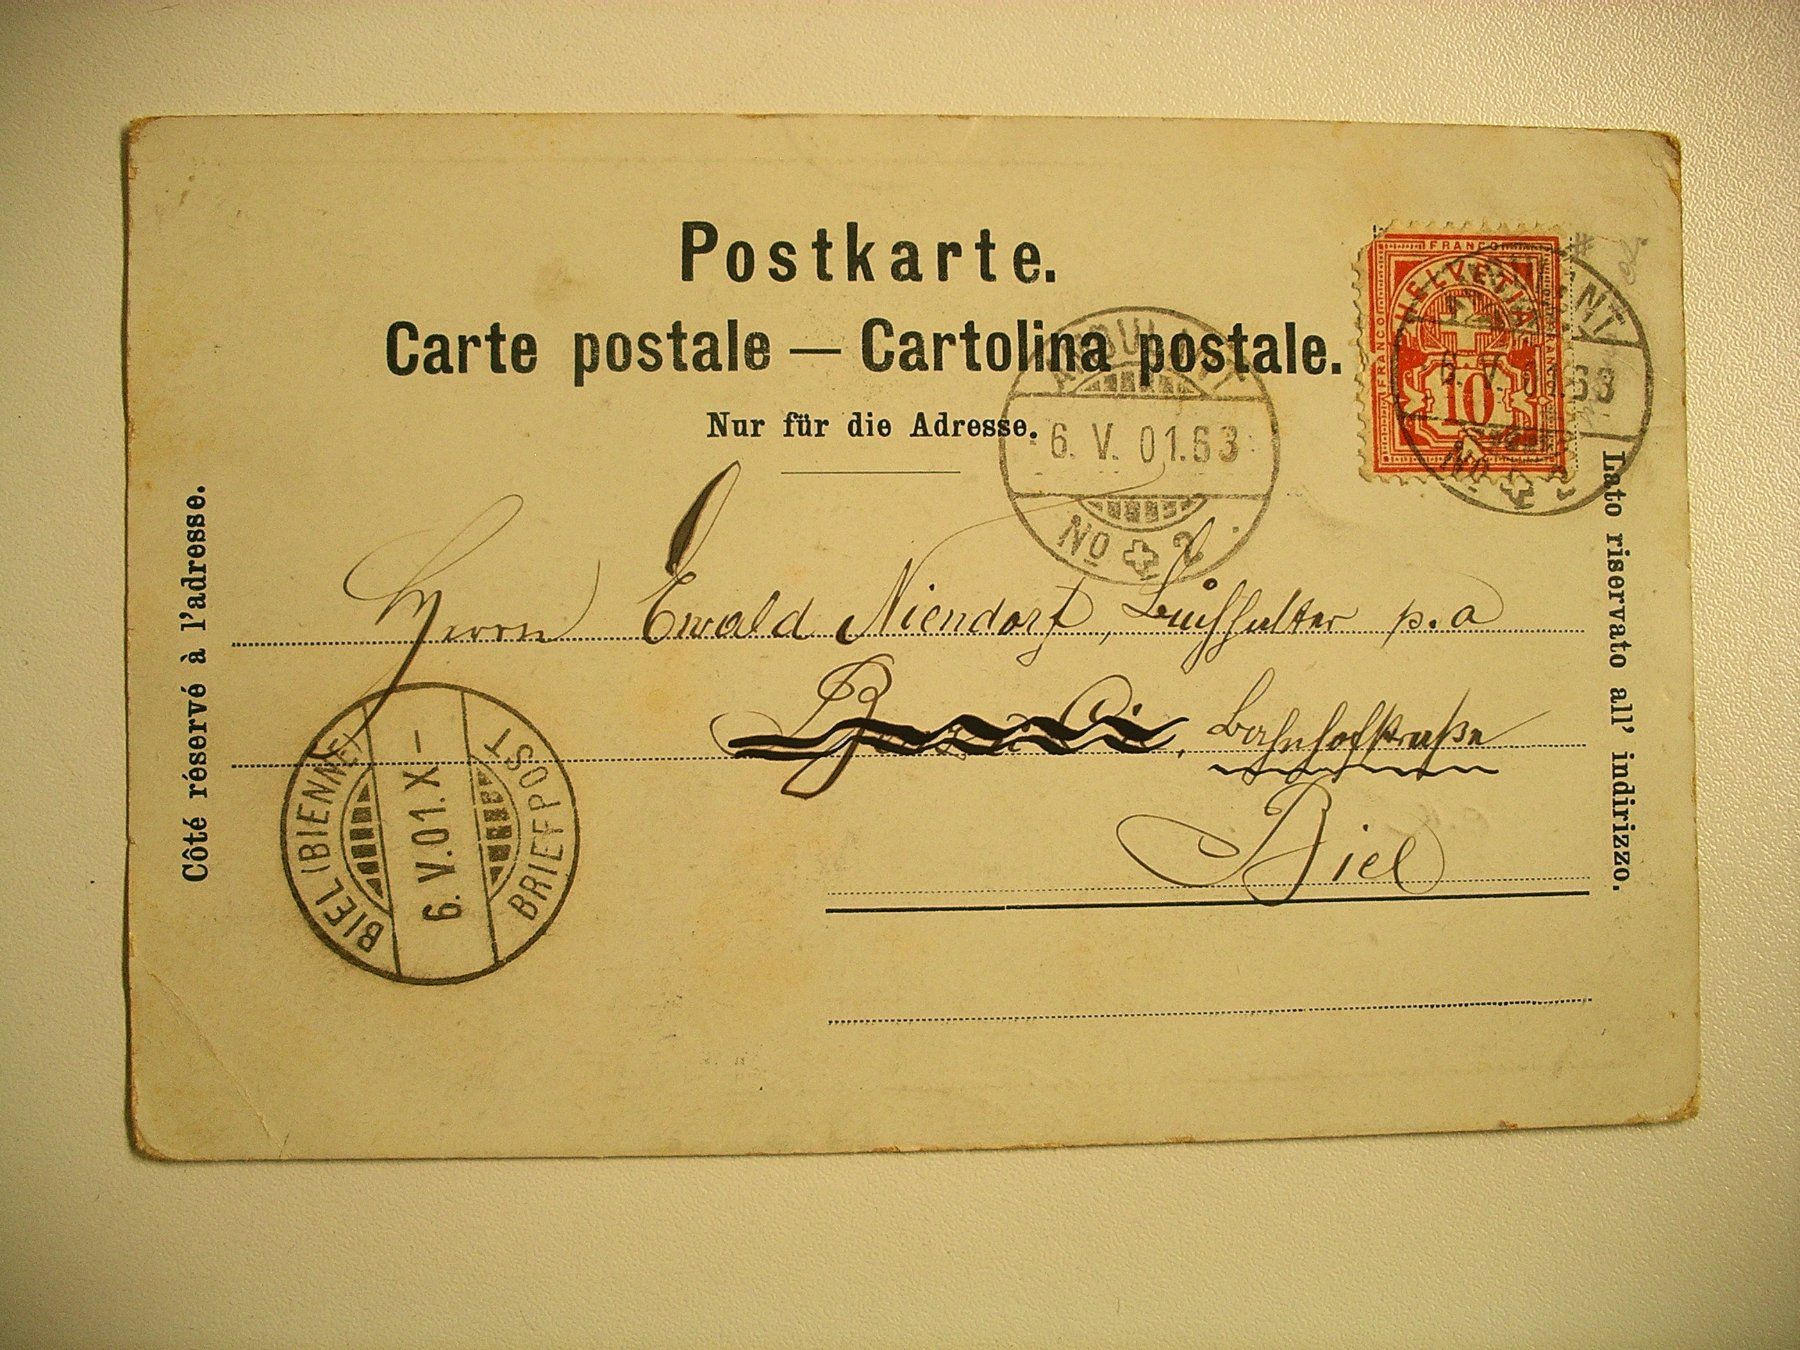 Postkarte.
Carte postale — Cartolina postale.
Nur für die Adresse.
Côté réservé à l'adresse.
Lato riservato all' indirizzo.
FRANCO
FRANCO
FRANCO
HELVETIA
10
6. V. 01. 63
No 2
AMBULANT
6. V. 01. 63
No 2
Herrn Ewald Niendorf, Buchhalter p. a
Bahnhofstraße
Biel
BIEL (BIENNE)
6. V. 01. X –
BRIEFPOST